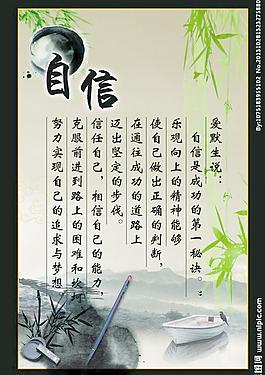 自信
爱默生说：
自信是成功的第一秘诀。：
乐观向上的精神能够
使自己做出正确的判断，
在通往成功的道路上
迈出坚定的步伐。
信任自己，相信自己的能力，
克服前进到路上的困难和坎坷
努力实现自己的追求与梦想
图网 www.nipic.com
By:1075183955102 No.20131028132327588